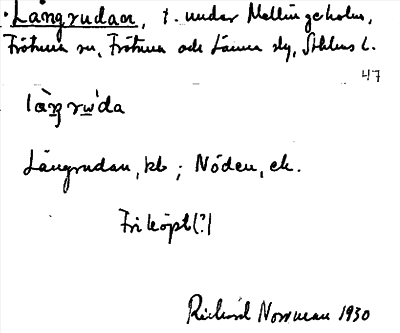 Långrudan, t. under Mellingeholm,
Frötuna sn, Frötuna och Länna slg, Sthlms l.
47
làŋrẁda
Långrudan, kb ; Nöden, ek.
Friköpt(?)
Rickard Norrman 1930